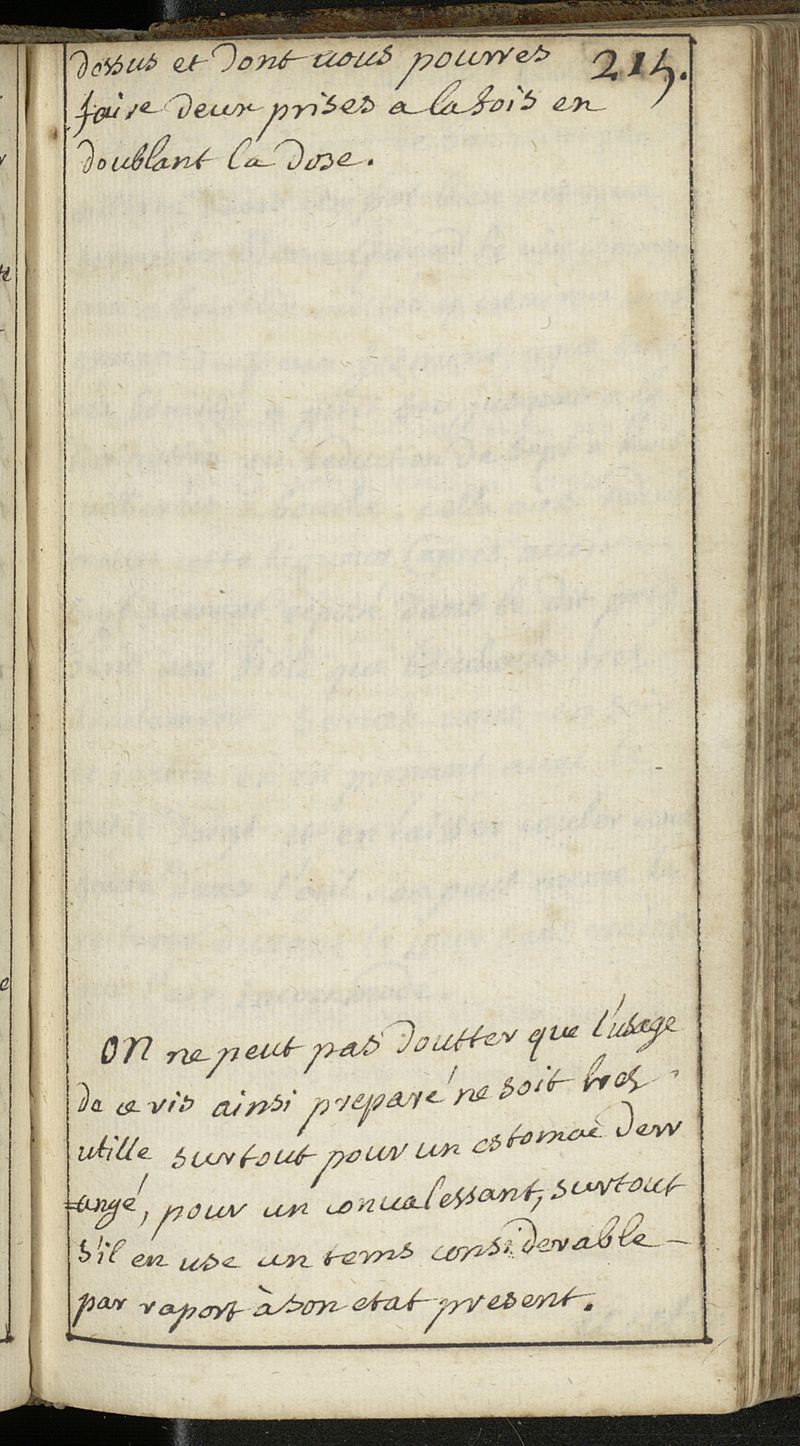 dessus et dont uous pourres 215.
faire deux prises a la fois en
doublant la dose.
ON ne peut pas doutter que l'usage
de ce ris ainsi preparé ne soit tres
utille surtout pour un estomac derr
=angé, pour un conualessant, surtout
s'il en use un tems considerable
par raport à son etat present.